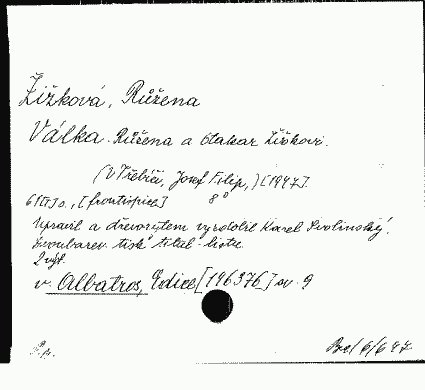 Žižková, Růžena
Válka. Růžena a Otakar Žižkovi.
(V Třebíči, Josef Filip,) [1947].
8°
[frontispice]
Upravil a dřevorytem vyzdobil Karel Svolinský.
Dvoubarev. tisk titul. listu
2 výt.
v. Albatros, Edice [196376] sv. 9